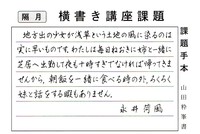 隔月
横書き講座課題
地方出の少女が浅草という土地の風に染るのは
実に早いものです。わたしは毎日おきに姉と一緒に
芝居へ出勤して夜も十時すぎでなければ帰ってきま
せんから、朝飯を一緒に食べる時の外、ろくろく
妹と話をする暇もありません。
永井荷風
課題手本
山田枠筆書